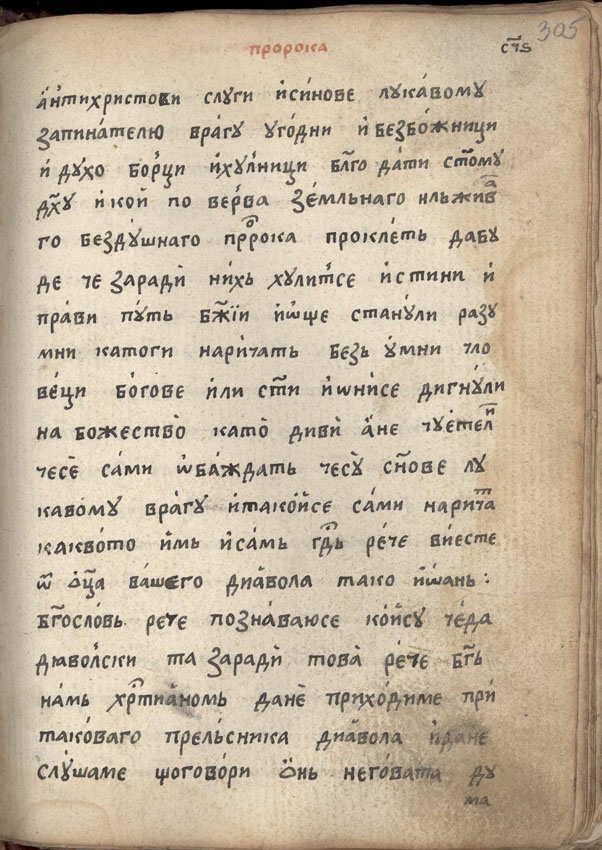 пророка
с҃ч҃ѕ 305
а́нтихристови слуги и҆синове лука́вому
запина́телю вра́гу уго́дни и҆ безбо́жници
и҆ духо бо́рци и҆ху́лници бл҃го да́ти ст҃о́му
дх҃у и҆кой по ве́рва зе́мльнаго ильживⷶ
го безду́шнаго пр҃ро́ка прокле́ть дабу
де че зарадѝ ни́хь хули́тсе и́стини и҆
пра́ви пу́ть бж҃їи и҆ѡ҆ще стану́ли разу
мни като́ги нари́чать безь у҆мни чло
ве́ци бо́гове и҆ли ст҃и и҆ѡни́се дигну́ли
на божество̀ като̀ дивѝ а҆не чуе́телⷩ҇и
чесѐ са́ми ѡ҆ба́ждать чесу̀ сн҃ове лу
кавому врагу и҆тако́йсе са́ми наричⷮа
какво́то и҆мь и҆са́мь гд҃ь ре́че ви́есте
ѿ ѻ҆ц҃а ва́шего диа́вола тако и҆ѡ҆ань :
бг҃осло́вь рече позна́ваюсе ко́йсу че́да
дїаво́лски та зарадѝ това̀ ре́че бг҃ь
на́мь хрⷭ҇тиа́номь данѐ прихо́диме при́
тако́ваго прельсника диа́вола и҆дане
слу́шаме що́говори ѻ҆нь него́вата ду
ма